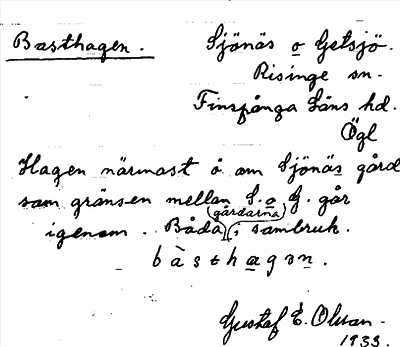 Basthagen. Sjönäs o Getsjö.
Risinge sn.
Finspånga Läns hd.
Ögl
Hagen närmast ö om Sjönäs gård
som gränsen mellan S. o G. går
igenom. Båda (gårdarna) i sambruk.
bàsthagən.
Gustaf E. Olsson.
1933.